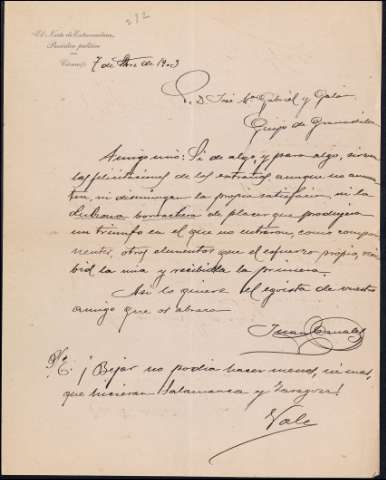 232
El Norte de Extremadura
Periódico político
Cáceres 7 de de 1903
S. D. José Mª Gabriel y Galán
Guijo de Granadilla
Amigo mío: Si de algo y para algo, sirven
las felicitaciones de los extraños aunque no aumen-
ten, ni disminuyan la propia satisfacción, ni la
borrachera de placer que produjera
un triunfo en el que no entraron, como compo-
nentes, otros elementos que el esfuerzo propio, reci-
bid la mía y recibidla la primera.
Así lo quiere el egoísta de vuestro
amigo que os abraza
Juan
¡Béjar no podía hacer menos, ni más,
que hicieran Salamanca y Zaragoza!
Vale